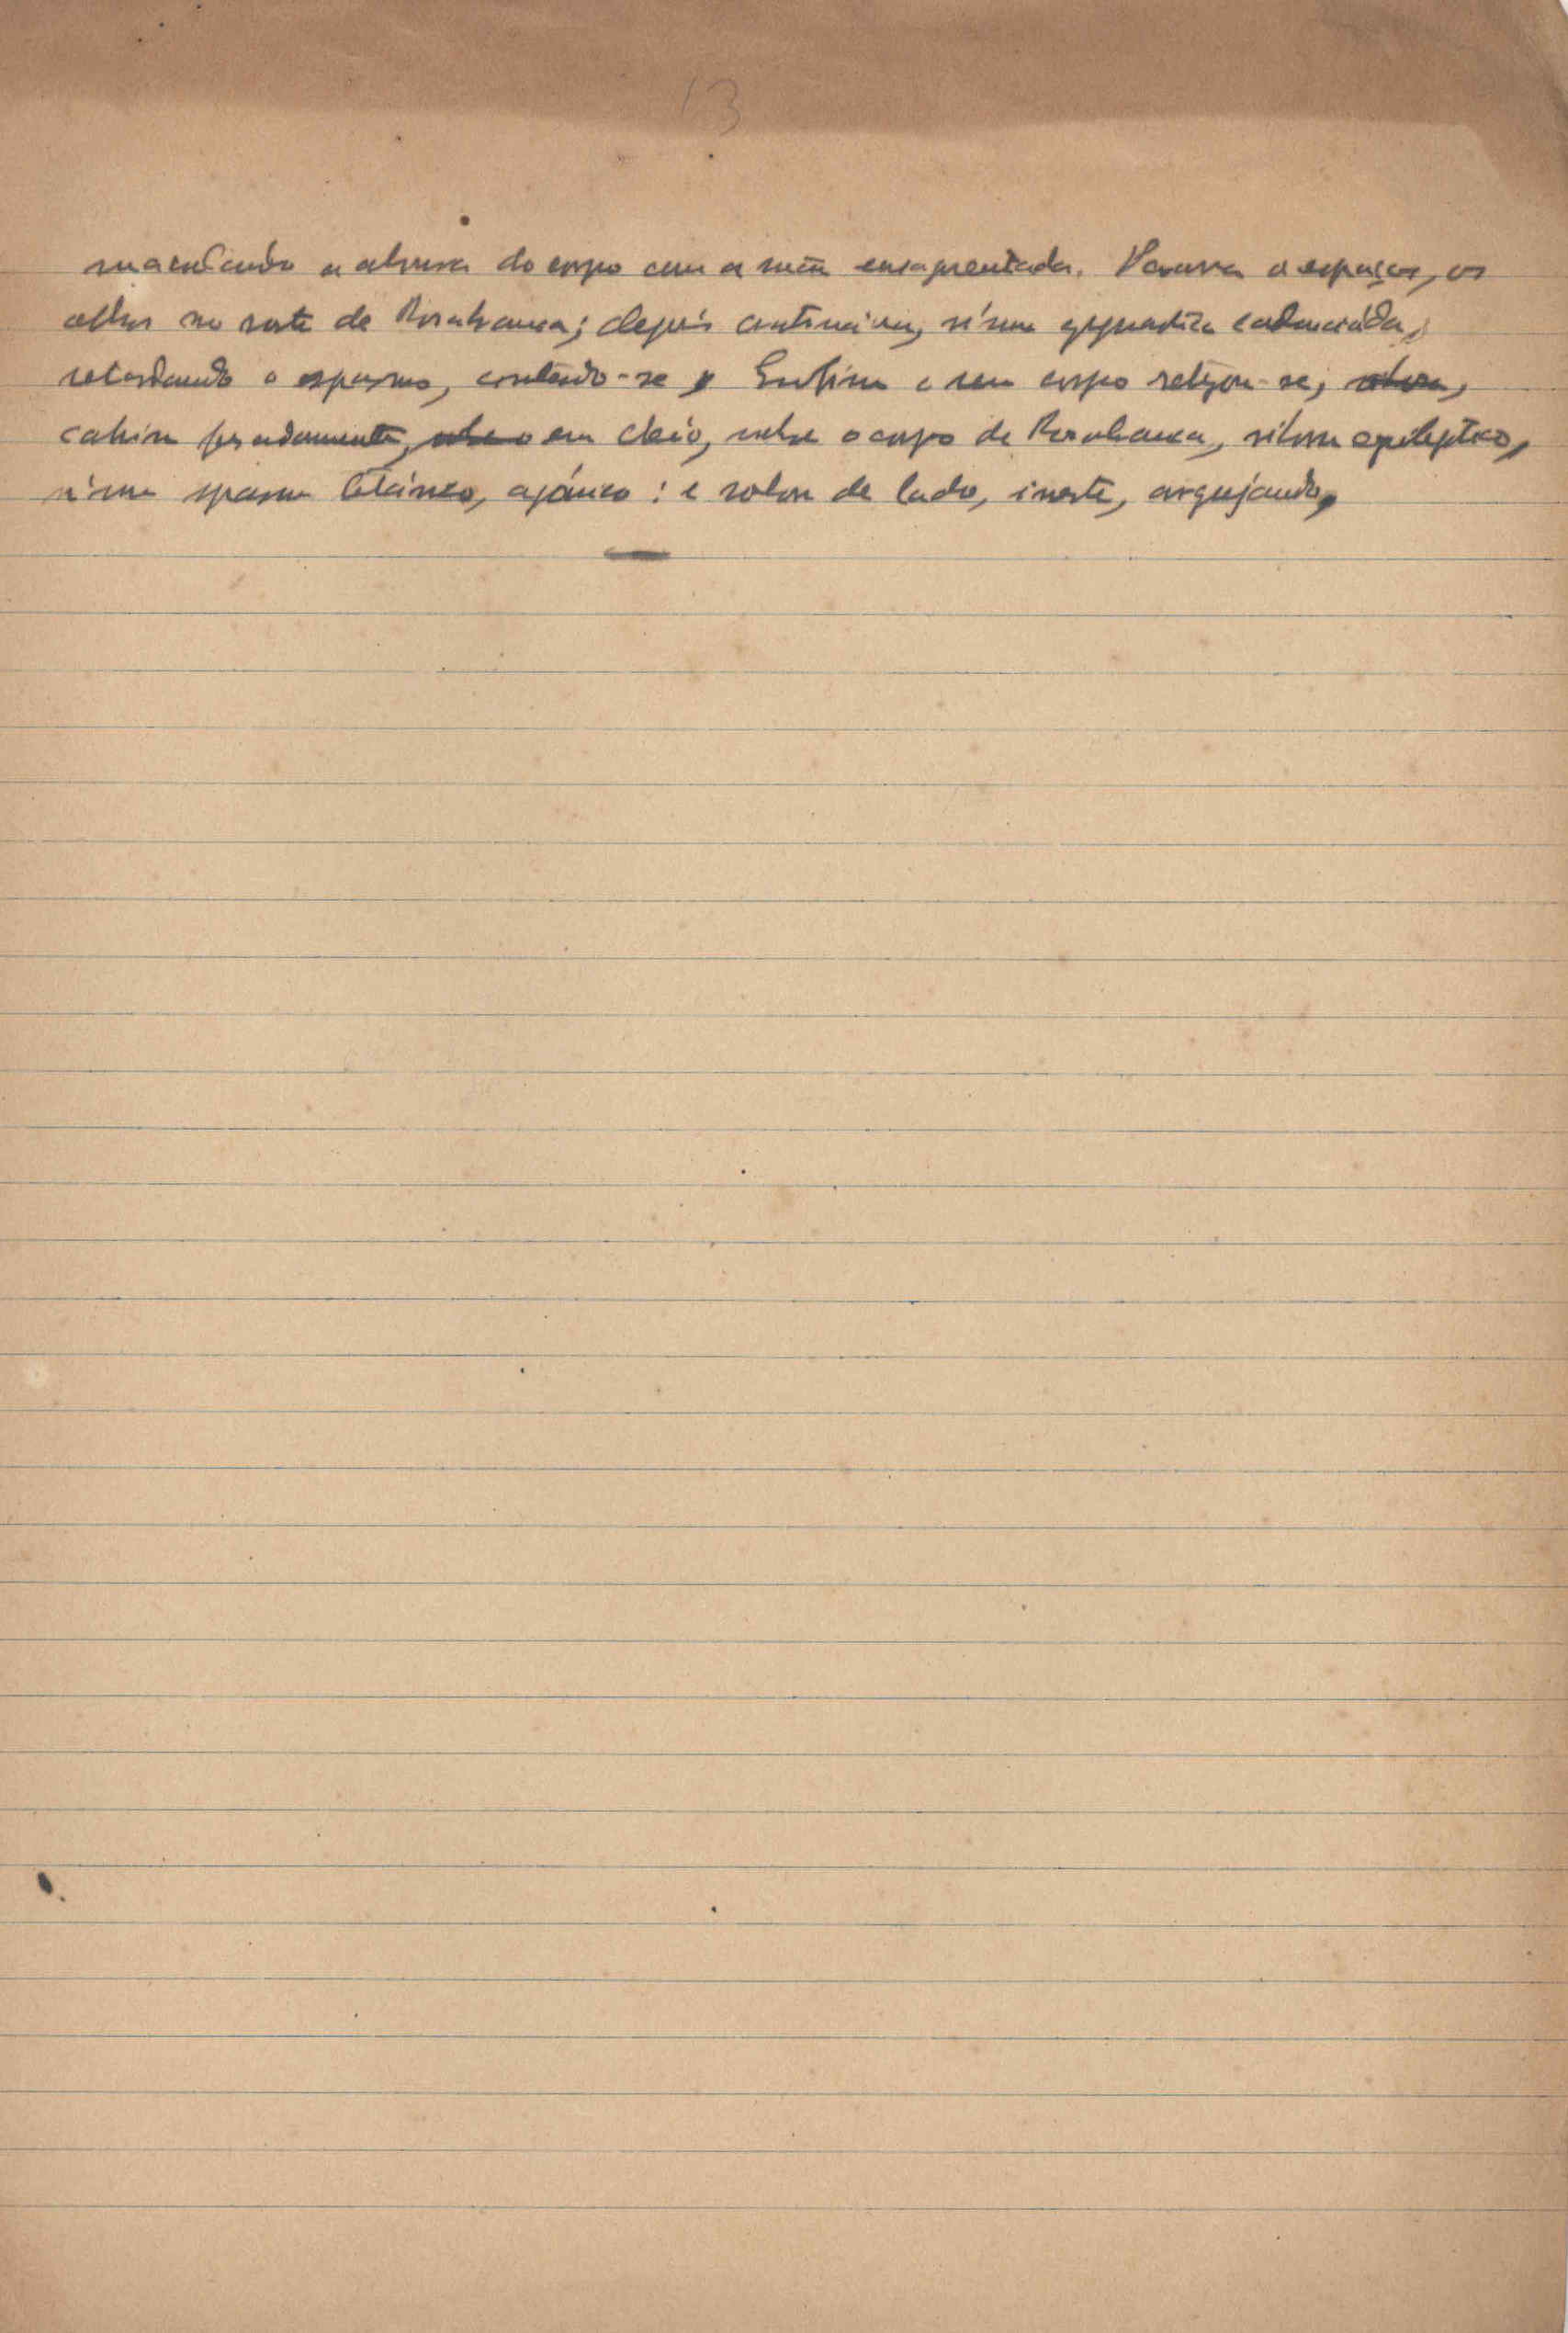 13
maculando a alvura do corpo com a mão ensaguentada. Parava a espaços, os
olhos no rosto de Rosabranca; depois continuava, n'uma gymnastica cadenciada,
retardando o espasmo, contendo-se, Enfim o seu corpo retezou-se,
cahiu pesadamente, em cheio, sobre o corpo de Rosabranca, vibrou epileptico,
n'um spasmo titánico, agónico: e rolou de lado, inerte, arquejando,